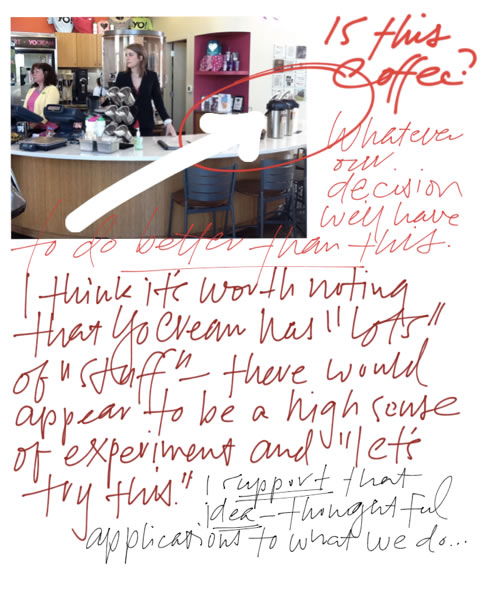 Is this
Coffee?
Whatever
our
decision
we'll have
to do better than this.
I think it's worth noting
that YoCream has "lots"
of "stuff" – there would
appear to be a high sense
of experiment and "let's
try this."
I support that
idea – thoughtful
applications to what we do...